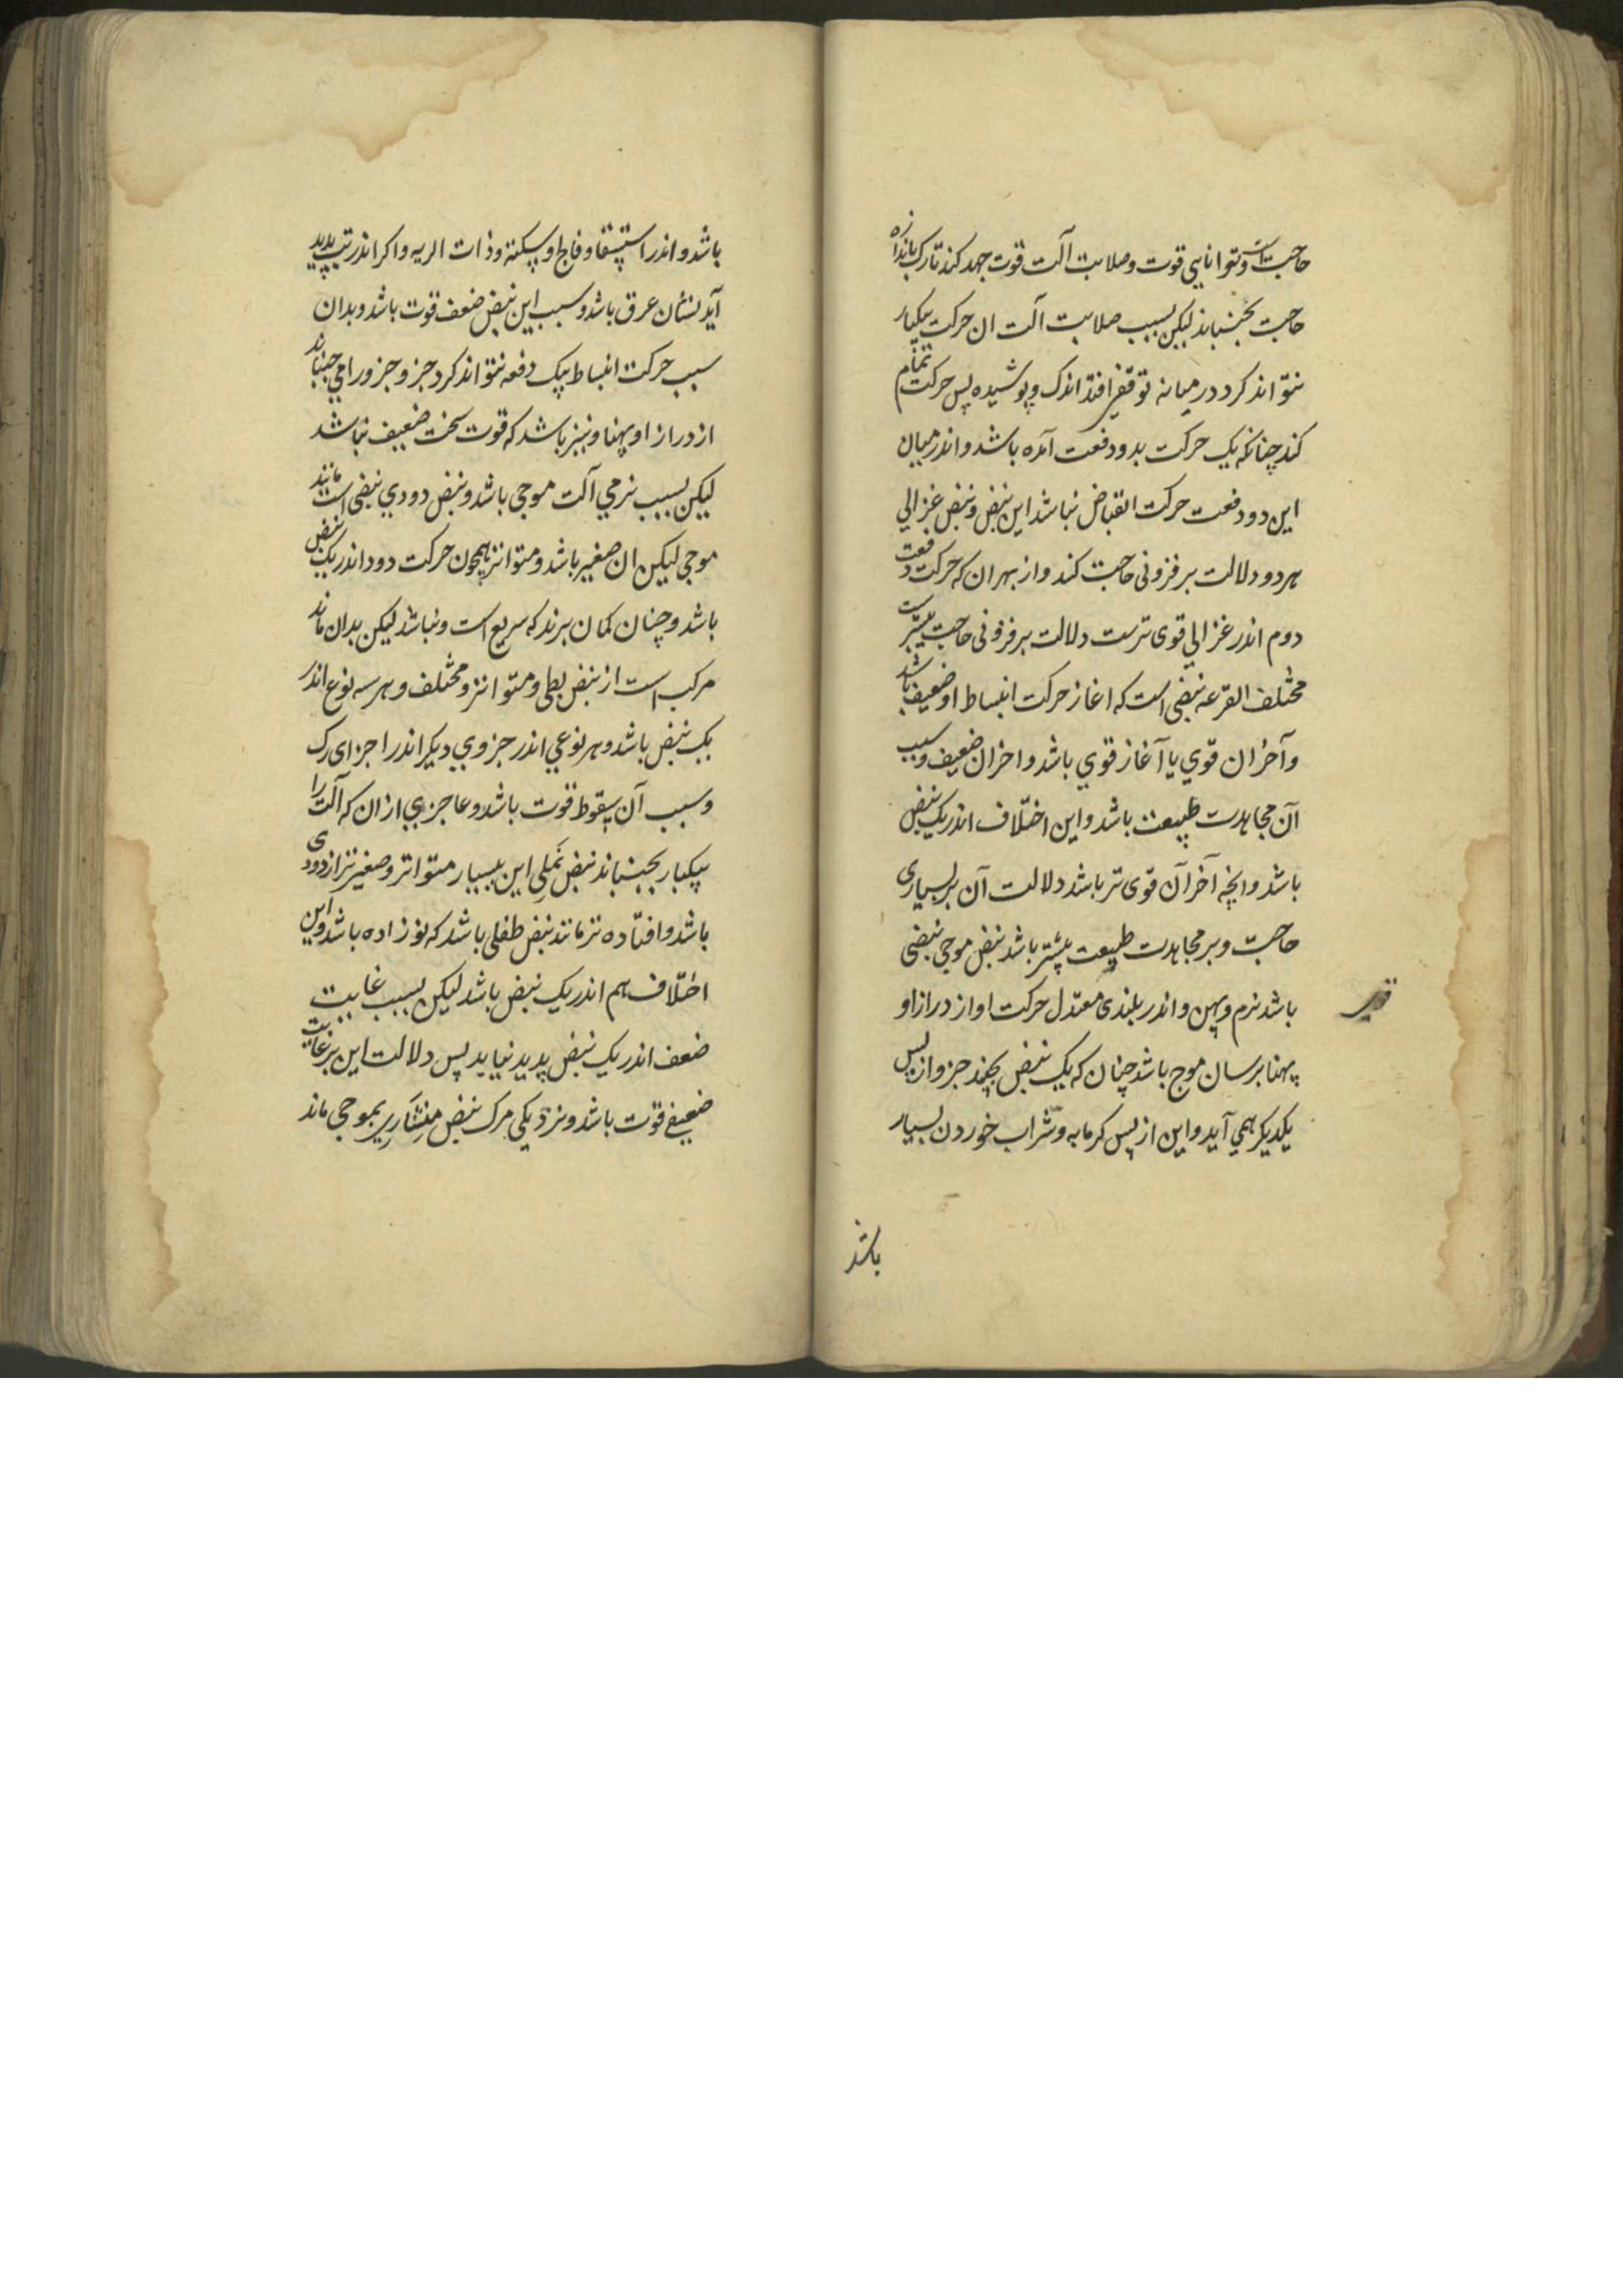 حاجت است و توانایی قوت و صلابت آلت قوت جهد کند تا رک باندازه
حاجت بجنباند لیکن بسبب صلابت آلت ان حرکت بیکبار
نتواند کرد در میانه توقفی افتد اندک و پوشیده پس حرکت تمام
کند چنانکه یک حرکت بدو دفعت آمده باشد و اندر میان
این دو دفعت حرکت انقباض نباشد این نبض و نبض غزالی
هر دو دلالت بر فزونی حاجت کند و از بهر ان که حرکت دفعت
دوم اندر غزالی قوی ترست دلالت بر فزونی حاجت بیشترست
مختلف القرعه نبضی است که اغاز حرکت انبساط او ضعیف باشد
و آخر ان قوّی یا آغاز قوی باشد و اخر ان ضعیف و سبب
آن مجاهدت طبیعت باشد و این اختلاف اندر یک نبض
باشد و انچه آخر آن قوی تر باشد دلالت آن بر بسیاری
حاجت و بر مجاهدت طبیعت بیشتر باشد نبض موجی نبضی
باشد نرم و پهن و اندر بلندی معتدل حرکت او از دراز او
پهنا بر سان موج باشد چنان که یک نبض بچند جزو از پس
یکدیکر همی آید و این از پس کرمابه و شراب خوردن بسیار
باشد
باشد و اندر استسقا و فالج و سکته و ذات الریه و اکر اندر تب پدید
آید نشان عرق باشد و سبب این نبض ضعف قوت باشد و بدان
سبب حرکت انبساط بیک دفعه نتواند کرد جزو جزو را می جنباند
از دراز او پهنا و نیز باشد که قوت سخت ضعیف نباشد
لیکن بسبب نرمی آلت موجی باشد و نبض دودی نبضی است مانند
موجی لیکن ان صغیر باشد و متواتر همچون حرکت دود اندر یک نبض
باشد و چنان کمان برند که سریع است و نباشد لیکن بدان ماند
مرکب است از نبض بطی و متواتر و مختلف و هر سه نوع اندر
یک نبض باشد و هر نوعی اندر جزوی دیکر اندر اجزای رک
و سبب آن سقوط قوت باشد و عاجزی از ان که آلت را
بیکبار بجنباند نبض نملی این بسیار متواتر و صغیرتر از دودی
باشد و افتاده تر مانند نبض طفلی باشد که نو زاده باشد و این
اختلاف هم اندر یک نبض باشد لیکن بسبب غایت
ضعف اندر یک نبض پدید نیاید پس دلالت این بر غایت
ضعیفی قوت باشد و نزدیکی مرک نبض منشاری بموجی ماند